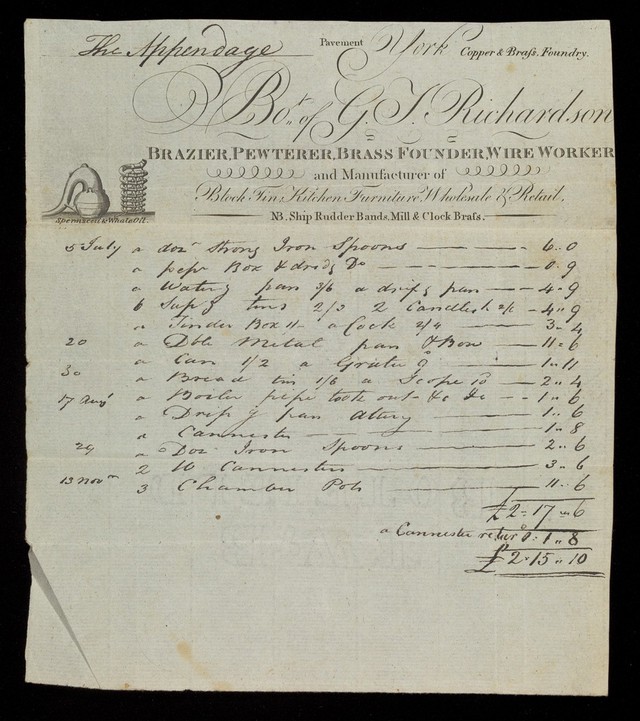 The Appendage Pavement York Copper & Braſs. Foundry.
Bo.t of G. T. Richardson
BRAZIER, PEWTERER, BRASS FOUNDER, WIRE WORKER
and Manufacturer of
Block Tin, Kitchen Furniture, Wholesale & Retail.
Spermaceti & Whale Oil.
NB. Ship Rudder Bands, Mill & Clock Braſs.
5 July a dozn Strong Iron Spoons 6 - 0
a pepr Box & dredg Do 0 - 9
a Watering pan 3/6 a drip g pan 4 - 9
6 Sup g tins 2/3 2 Candlesk 2/6 4 " 9
a Tinder Box 11- a Cock 2/4 3 - 4
20 a Dble Metal pan & Box 11 - 6
a Can 1/2 a Grater 9 1 " 11
30 a Bread tin 1/6 a Scope 10 2 " 4
17 Augt a Boiler pipe took out & c & c 1 " 6
a Drip g pan 1 " 6
a Cannester 1 " 8
29 a Doz Iron Spoons 2 " 6
2 Cannesters 3 " 6
13 Novm 3 Chamber Pots 11 " 6
£ 2 " 17 " 6
a Cannester retur d 0 : 1 " 8
£ 2 " 15 " 10